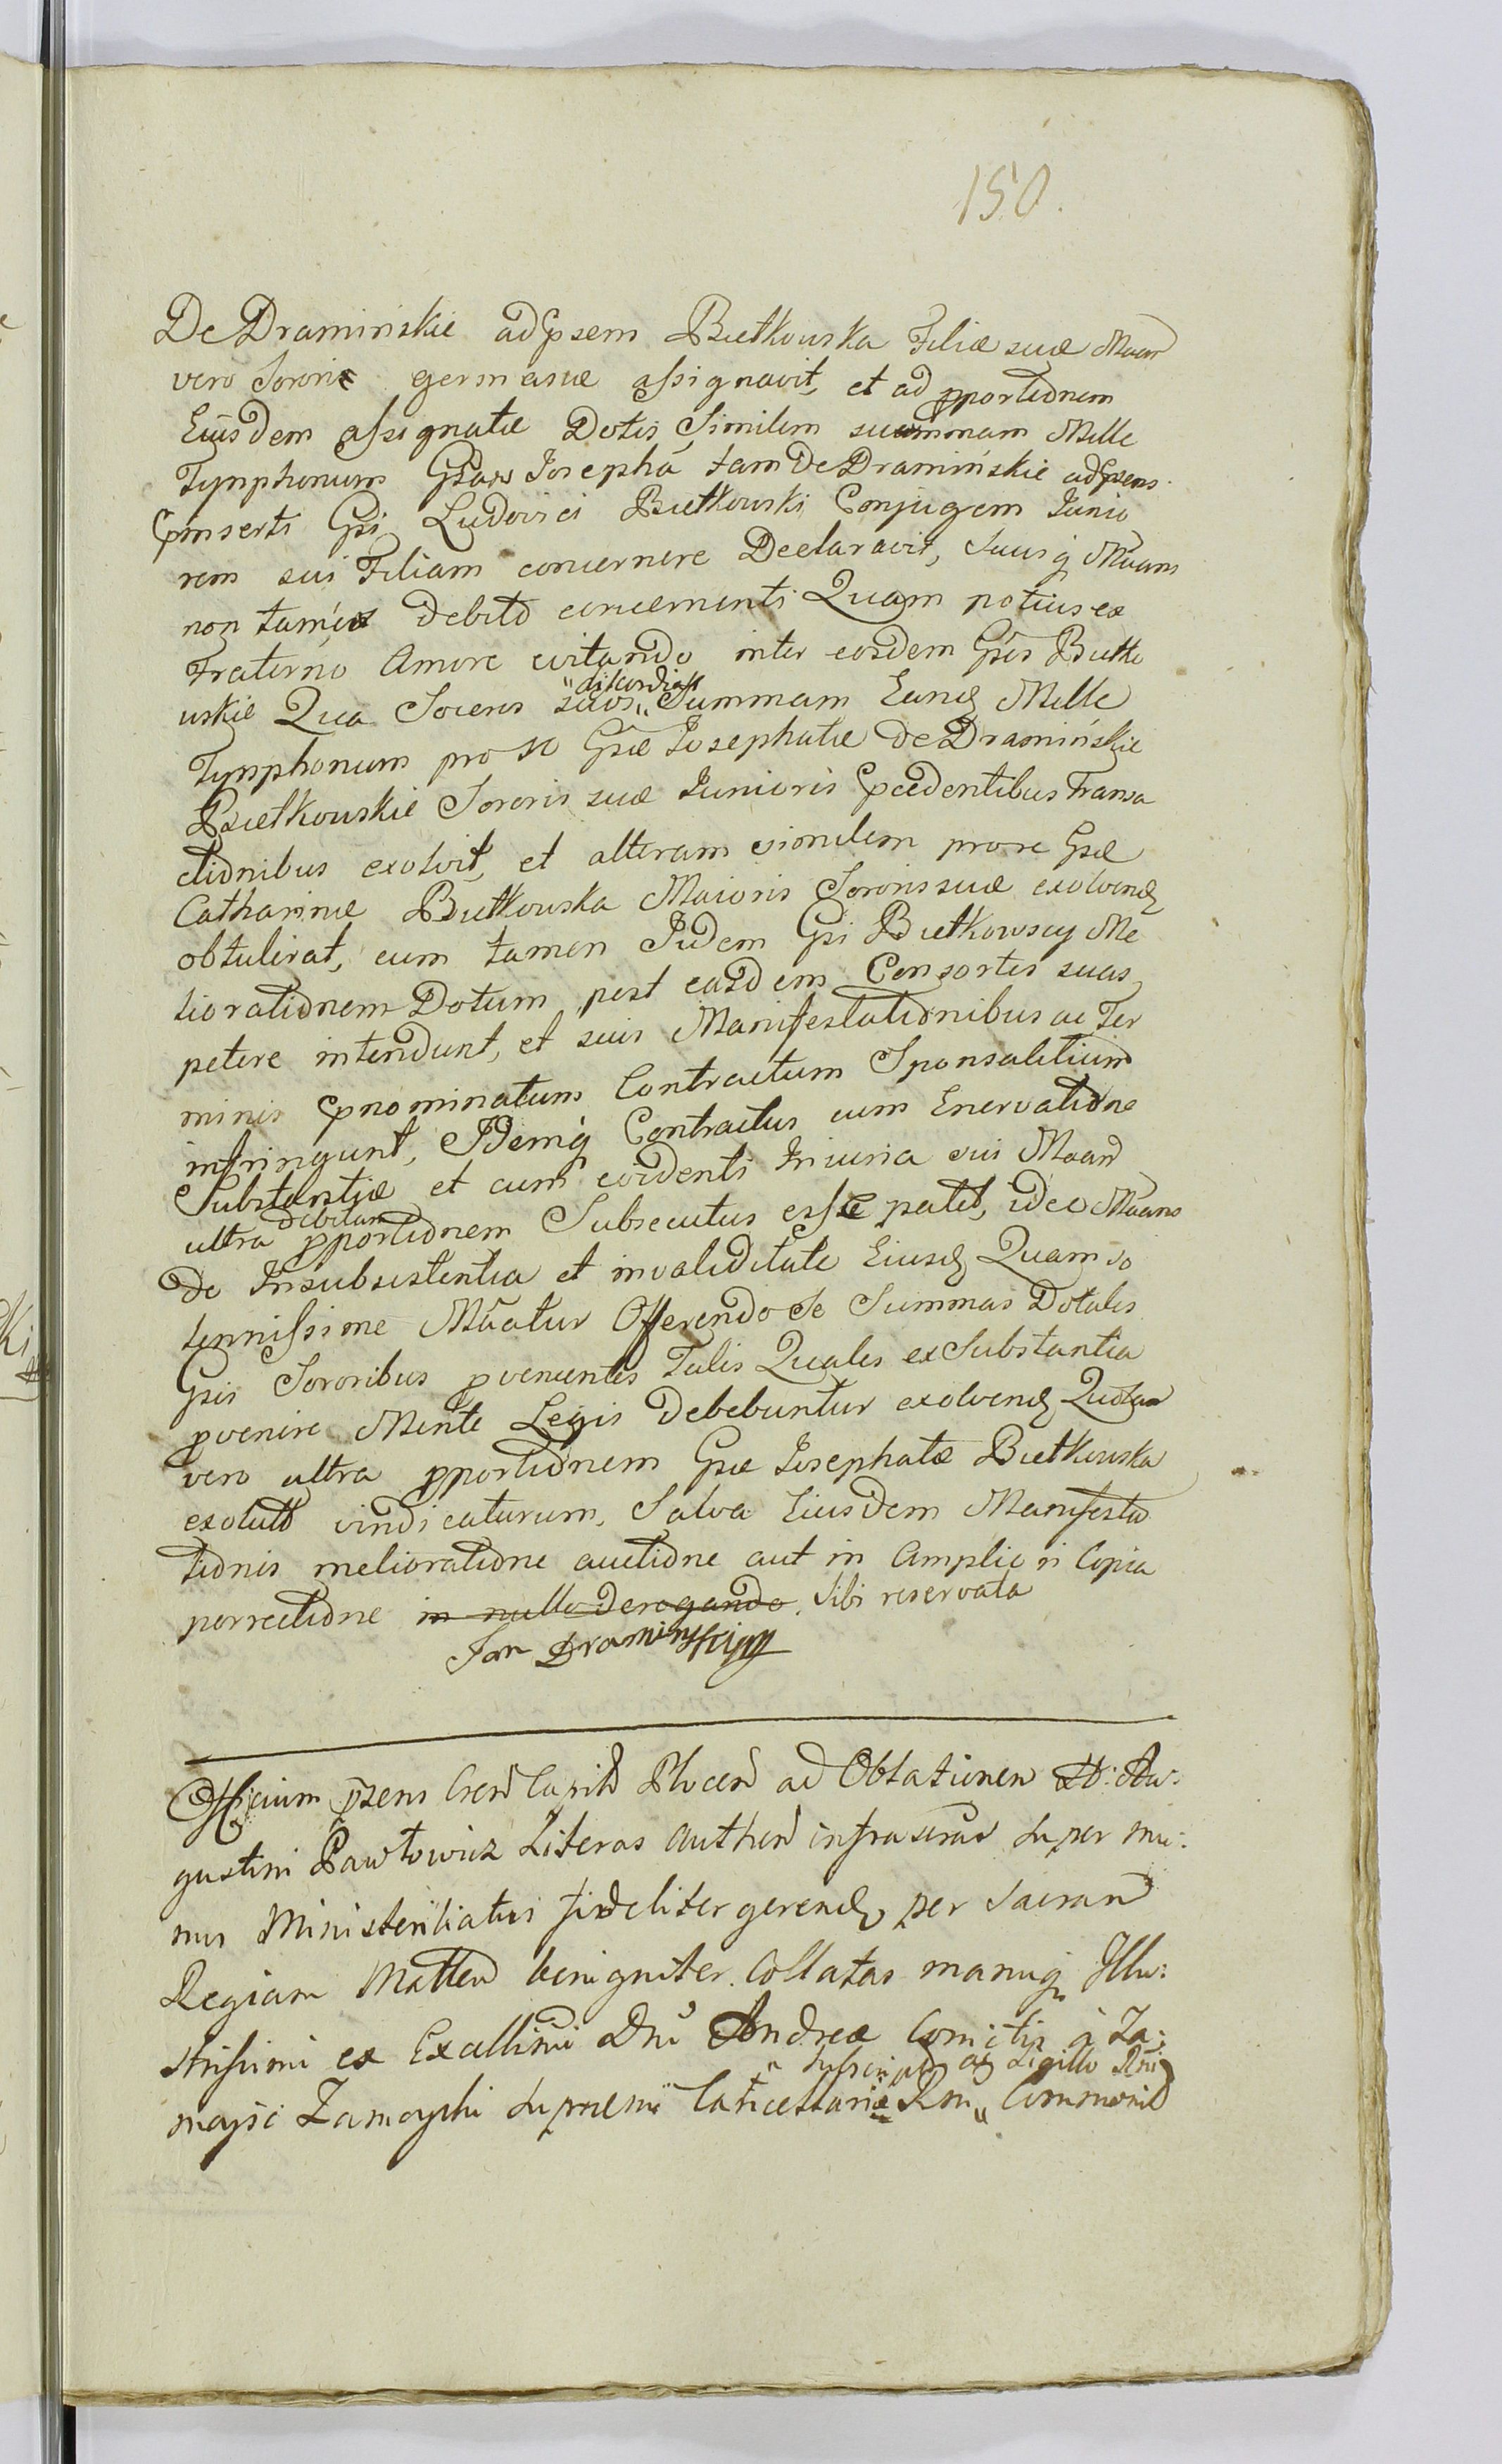 150.
De Dramińskie adpsem Bietkowska Filiæ suæ Maan
vero Sororis germanæ assignavit, et ad pportionem
Eiusdem assignatæ Dotis Similem summam Mille
Tynphonum Gsam Josepha tam De Dramińskie adpsens
pinserti Gsi Ludovici Bietkowski Conjugem Junio
rem sui Filiam concernere Declaravit, suusq Maans
non tam ex debito concernenti Quam potius ex
Fraterno Amore evitando inter eosdem Gses Bietko
wskie Qua Soceros suos „discordias„ Summam Eand Mille
Tynphonum pro se Gsæ Josephatæ de Dramińskie
Bietkowskie Sororis suæ Junioris pcedentibus Transa
ctionibus exolvit, et alteram similem prore Gsæ
Catharinæ Bietkowska Maioris Sororis suæ exolvend
obtulerat, cum tamen Iidem Gsi Bietkowscy Me
liorationem Dotum post easdem Consortes suas
petere intendunt, et suis Manifestationibus ac Ter
minis pnominatum Contractum Sponsalitium
infringunt, Idemq Contractus cum Enervatione
Substantiæ et cum evidenti Iniuria sui Maan
ultra debitam pportionem Subsecutus esse patet, ideo Maans
De Insubsistentia et invaliditate Eiusd Quam so
lennissime Maatur Offerendo Se Summas Dotales
Gsis Sororibus pvenientes Tales Quales ex Substantia
pvenire Mente Legis debebuntur exolvend Quotam
vero ultra pportionem Gsæ Josephatæ Bietkowska
exoluto vindicaturum, Salva Eiusdem Manifesta
tionis melioratione auctione aut in Ampliori Copia
porrectione in nullo derogando. sibi reservata
Jan Dramiński
Officium pzens Cren Capitl Plocen ad Oblationem H: Au:
gustini Pawłowicz Literas Authen infrascras super mu:
nus Ministerialatus fideliter gerend, per Sacram
Regiam Mattem benigniter Collatas manuq Illu:
strissimi ex Excellmi Dni Andreæ Comitis à Za:
mojsci Zamoyski supremi Cancellarii „subscript ac Sigillo Rni„ Rni Commonit